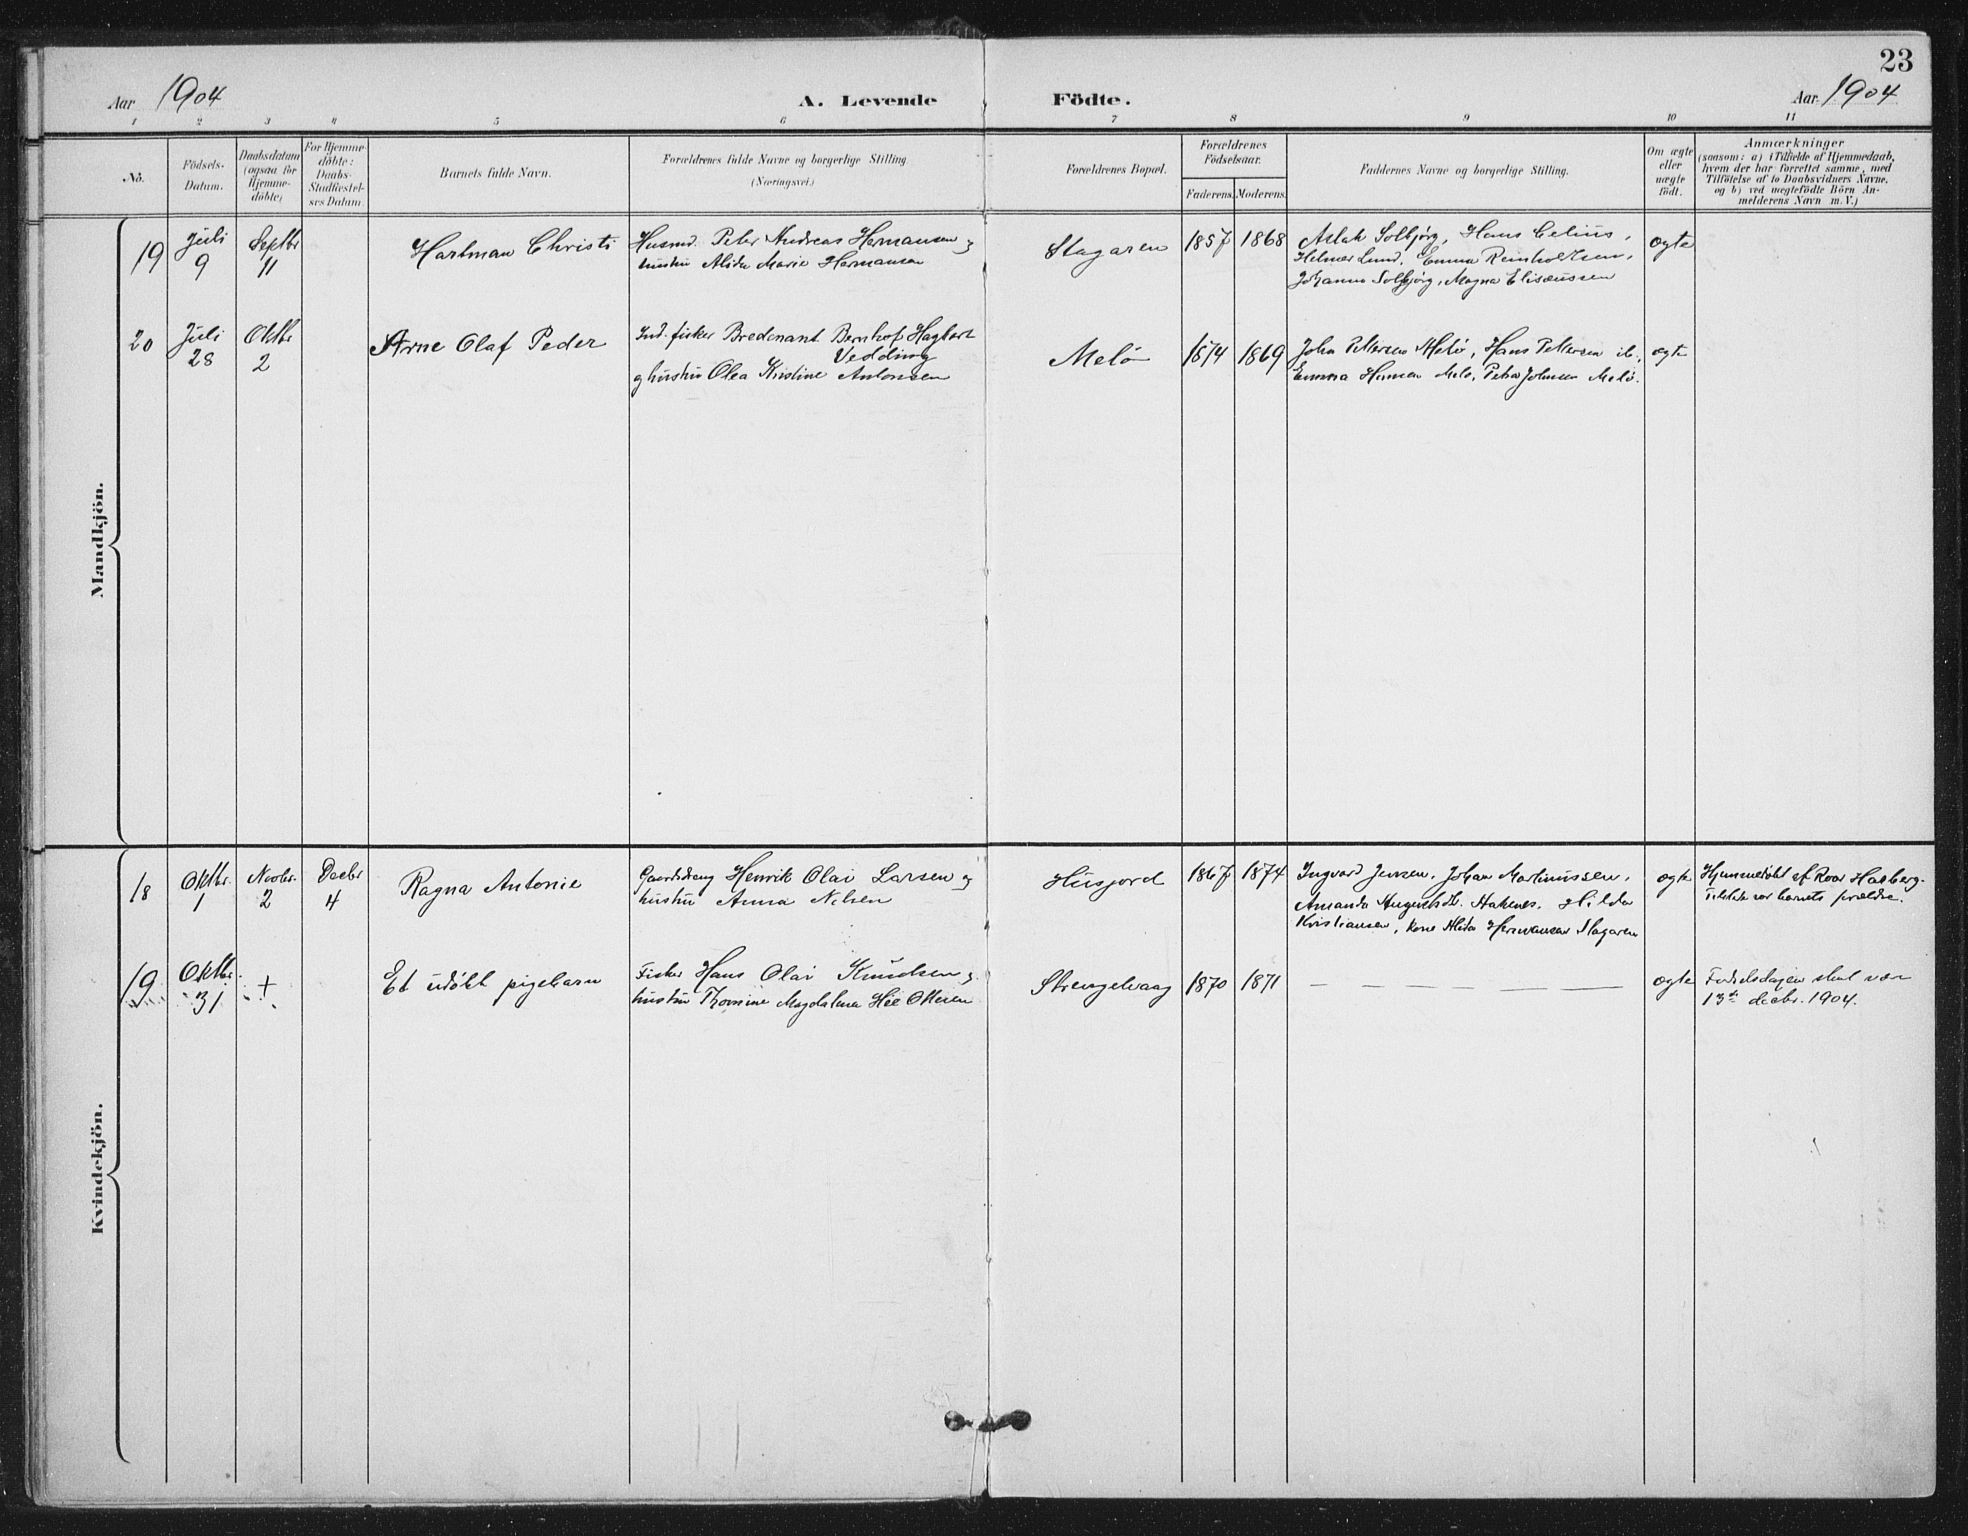 23
Aar 1904
A. Levende Födte.
Aar 1904
1 2 3 4 5 6 7 8 9 10 11
No.
Födsels-
Datum.
Daabsdatum
(ogsaa for
Hjemme-
döbte)
For Hjemme-
döbte:
Daabs-
Stadfæstel-
ses Datum.
Barnets fulde Navn.
Forældrenes fulde Navne og borgerlige Stilling.
(Næringsvei.)
Forældrenes Bopæl.
Forældrenes
Födselsaar.
Faderens. Moderens.
Faddernes Navne og borgerlige Stilling.
Om ægte
eller
uægte
födt.
Anmærkninger
(saasom: a) i Tilfælde af Hjemmedaab,
hvem der har forrettet samme, med
Tilföielse af to Daabsvidners Navne,
og b) ved uægtefödte Börn An-
melderens Navn m. V.)
Mandkjön.
19
Juli
9
Septbr
11
Hartman Christi
Husmd. Peter Andreas Hermansen og
hustru Alida Marie Hermansen
Stagaren
1857 1868
Aslak Solbjörg, Hans Celius,
Helmer Lund, Emma Reinholdtsen,
Johanna Solbjörg, Magna Elisæussen
ægte
20
Juli
28
Oktbr
2
Arne Olaf Peder
Ind. fisker Bredenant Bernhof Hagbart
Vedding
og hustru Olea Kristine Antonsen
Melö
1874 1869
John Pettersen Melö, Hans Pettersen ib.,
Emma Hansen Melö, Petra Johnsen Melö.
ægte
Kvindekjön.
18
Oktbr.
1
Novbr.
2
Decbr
4
Ragna Antonie
Gaardsdreng Henrik Olai Larsen og
hustru Anna Nilsen
Husjord
1867 1874
Ingvard Jensen, Johan Martinussen,
Amanda Haknes, Hilda
Kristiansen, kone Alida Hermansen Stagaren
ægte
Hjemmedöbt af Roar Hagberg.
Tilstede var barnets forældre.
19
Oktbr.
31
+
Et udöbt pigebarn
Fisker Hans Olai Knudsen og
hustru Thomine Magdalena Hee Ottesen
Strengelvaag
1870 1871
— — — — — —
ægte
Fødselsdagen skal være
13de decbr. 1904.